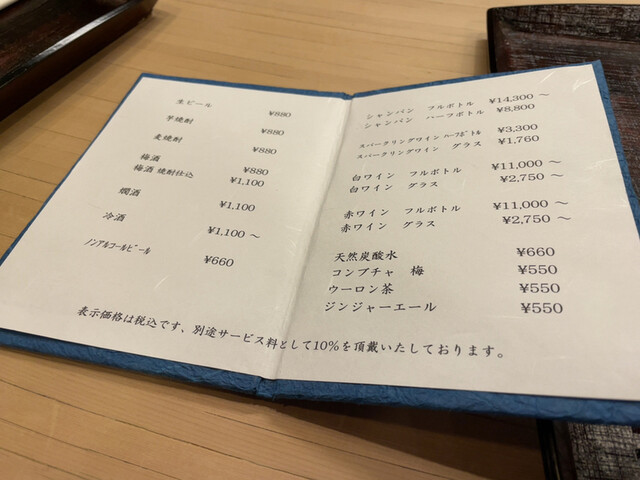 生ビール ¥880
芋焼酎 ¥880
麦焼酎 ¥880
梅酒 ¥880
梅酒 焼酎仕込 ¥1,100
燗酒 ¥1,100
冷酒 ¥1,100 ～
ノンアルコールビール ¥660
シャンパン フルボトル ¥14,300 ～
シャンパン ハーフボトル ¥8,800
スパークリングワイン ハーフボトル ¥3,300
スパークリングワイン グラス ¥1,760
白ワイン フルボトル ¥11,000 ～
白ワイン グラス ¥2,750 ～
赤ワイン フルボトル ¥11,000 ～
赤ワイン グラス ¥2,750 ～
天然炭酸水 ¥660
コンブチャ 梅 ¥550
ウーロン茶 ¥550
ジンジャーエール ¥550
表示価格は税込です、別途サービス料として10%を頂戴いたしております。